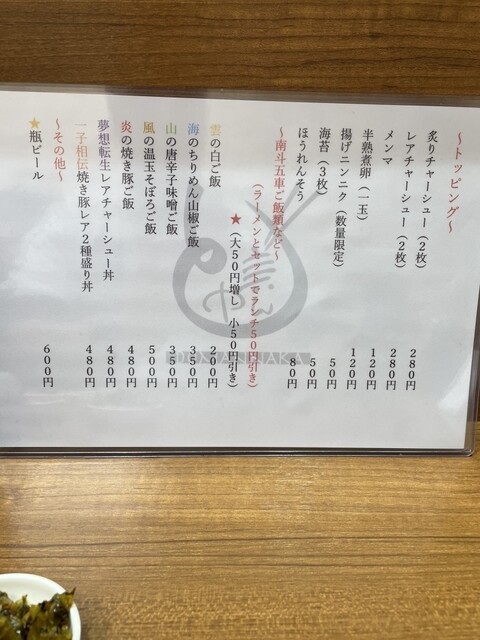 ～トッピング～
炙りチャーシュー（2枚） 280円
レアチャーシュー（2枚） 280円
メンマ 120円
半熟煮卵（一玉） 120円
揚げニンニク（数量限定） 50円
海苔（3枚） 50円
ほうれんそう 80円
～南斗五車ご飯類など～
（ラーメンとセットでランチ50円引き）
★（大50円増し 小50円引き）
雲の白ご飯 200円
海のちりめん山椒ご飯 350円
山の唐辛子味噌ご飯 350円
風の温玉そぼろご飯 500円
炎の焼き豚ご飯 480円
夢想転生レアチャーシュー丼 480円
一子相伝焼き豚レア2種盛り丼 480円
～その他～
★瓶ビール 600円